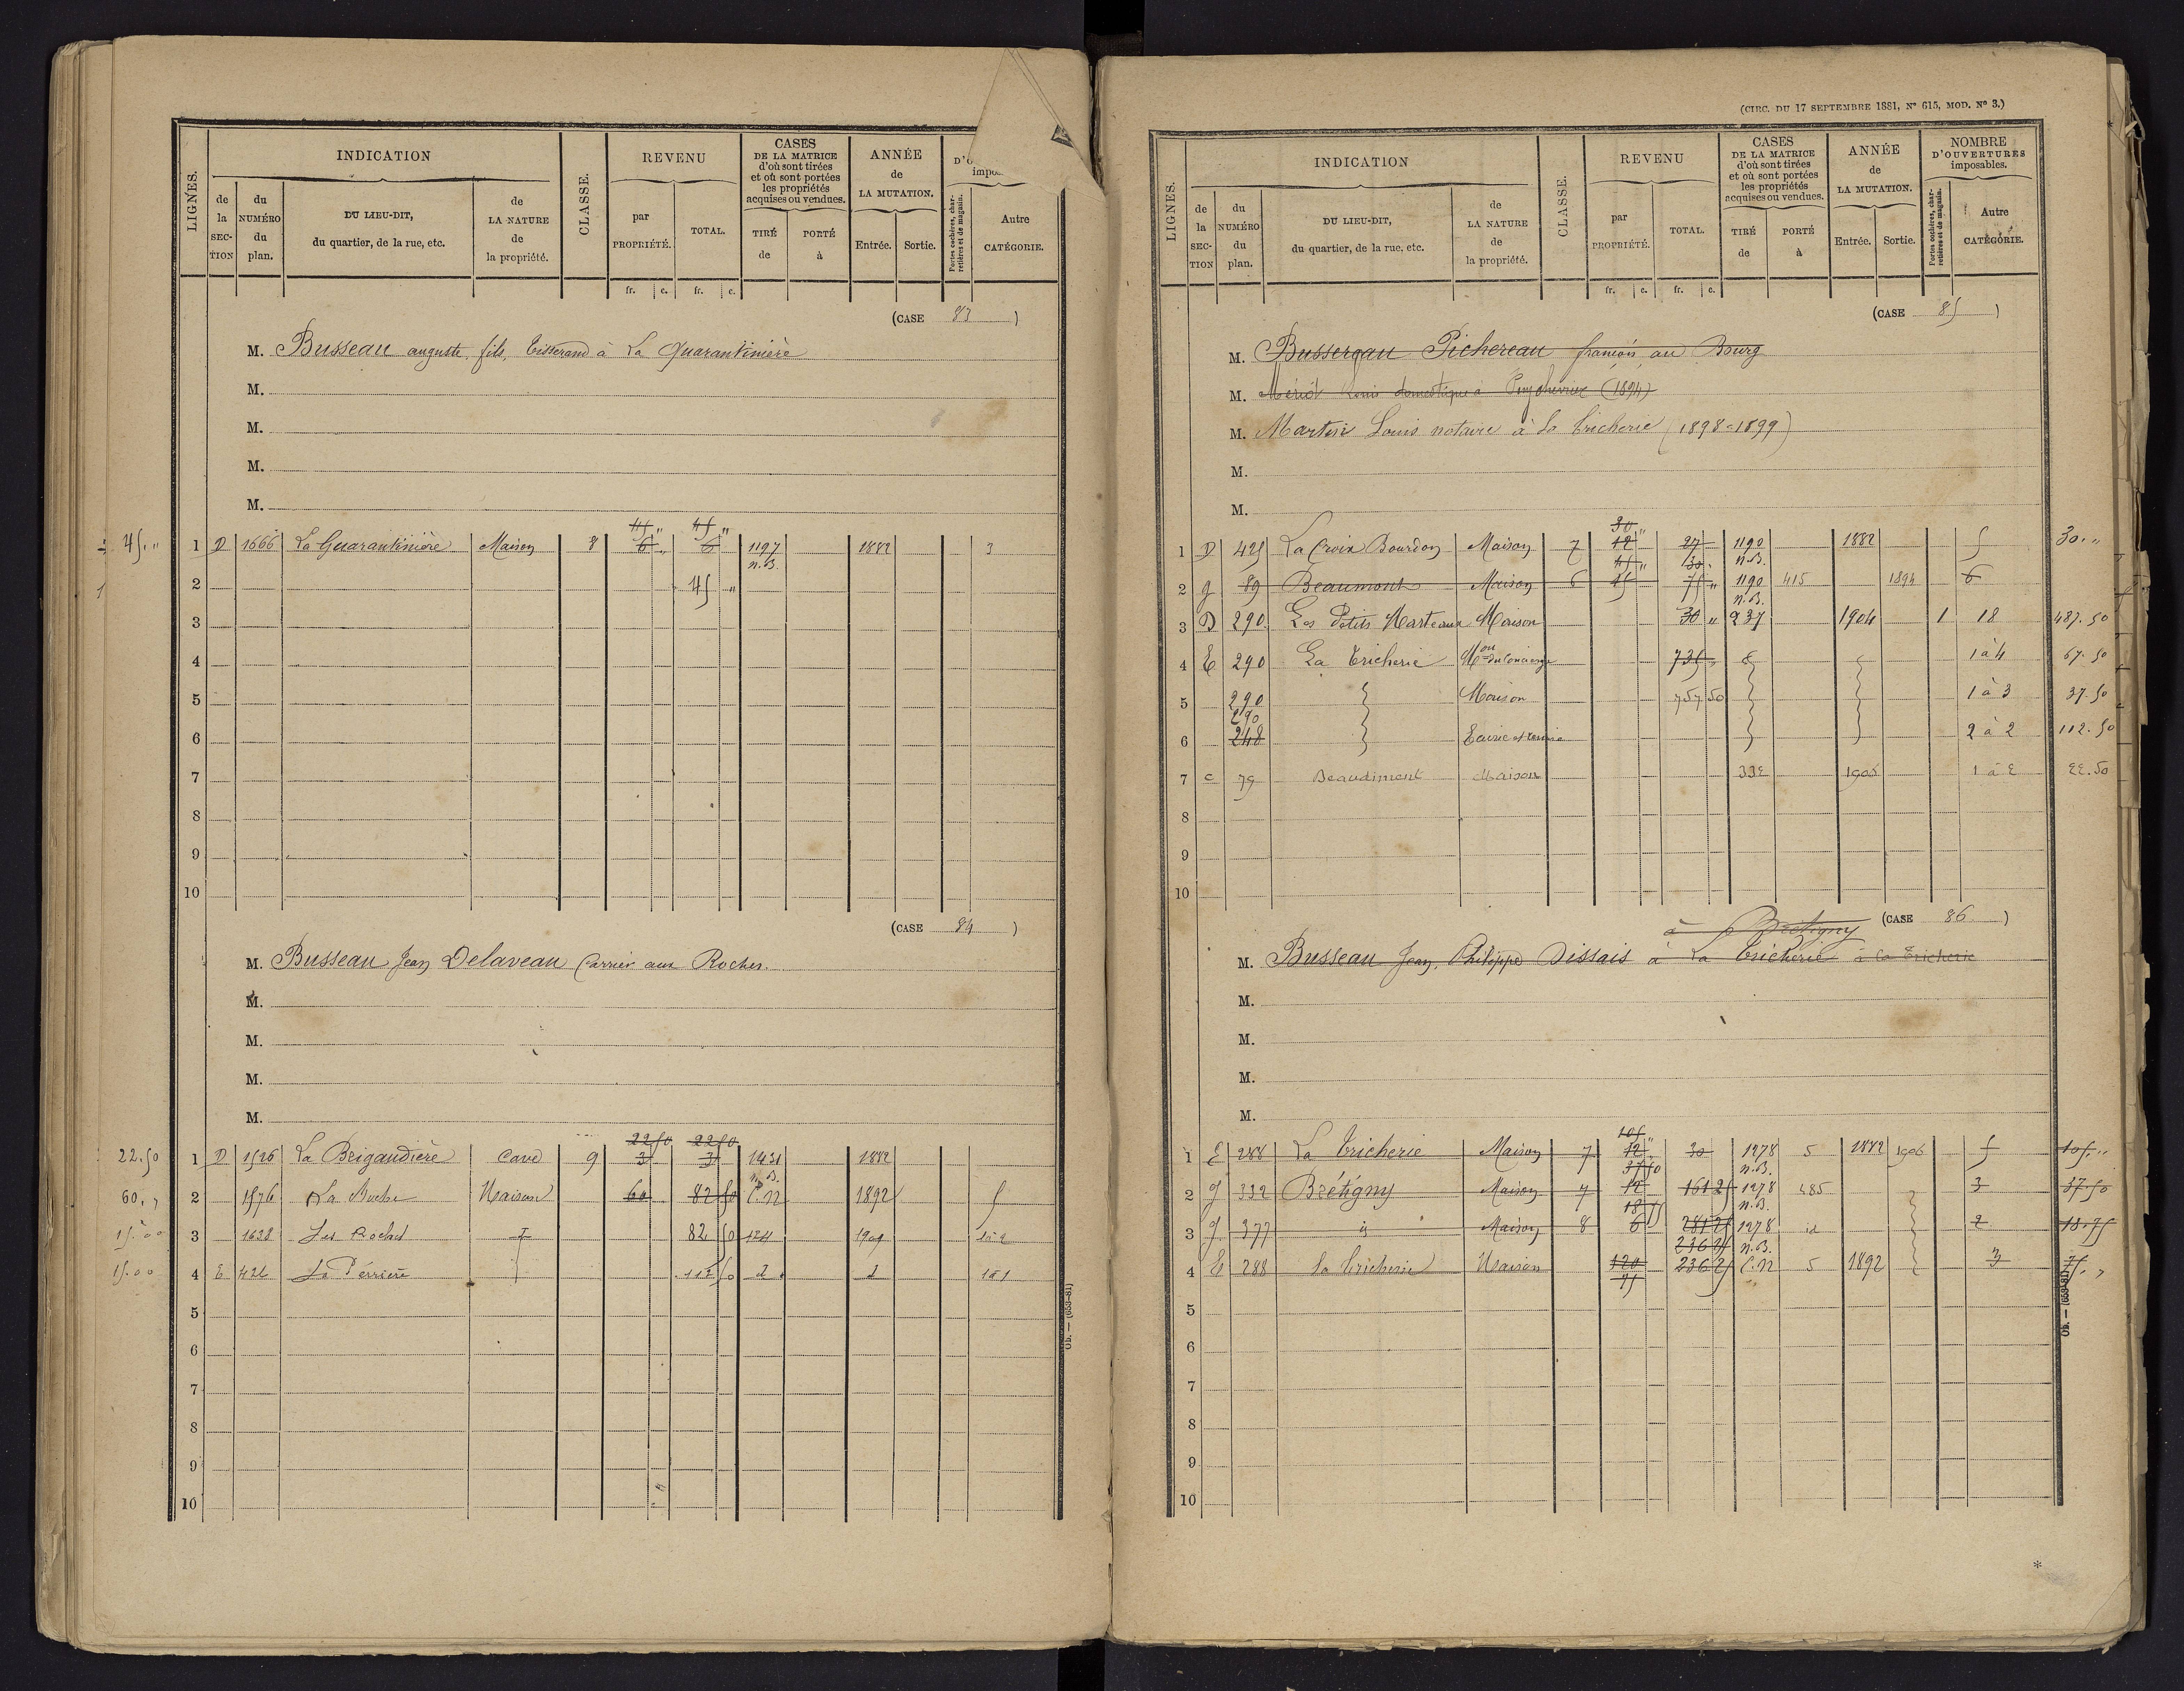 LIGNES.
INDICATION
de la SECTION
du NUMÉRO du plan.
DU LIEU-DIT, du quartier, de la rue, etc.
de LA NATURE de la propriété.
CLASSE.
REVENU
par PROPRIÉTÉ.
TOTAL.
fr. c. fr. c.
CASES DE LA MATRICE d'où sont tirées et où sont portées les propriétés acquises ou vendues.
TIRÉ de
PORTÉ à
ANNÉE de LA MUTATION.
Entrée. Sortie.
Portes cochères, charretières et de magasin.
Autre CATÉGORIE.
(CASE 83)
M. Busseau auguste, fils, tisserand à La Quarantinière
M.
M.
M.
M.
45 " 45 "
45 " 1 D 1666 La Quarantinière Maison 8 6 " 6 1197 1882 3
n.B.
2 45 "
3
4
5
6
7
8
9
10
(CASE 84)
M. Busseau Jean Delaveau Carrier aux Roches.
M.
M.
M.
M.
22 50 22 50
22.50 1 D 1526 La Brigaudière Cave 9 3 3 1431 1882
n.B.
60 " 2 1576 La Buche Maison 60 82 50 C.N 1892 5
15.00 3 1638 Les Roches 82 50 124 1901 1à2
15.00 4 E 422 La Perrière 112 50 d d 1à1
5
6
7
8
9
10
Ob. — (653-81)
(CIRC. DU 17 SEPTEMBRE 1881, N° 615, MOD. N° 3.)
LIGNES.
INDICATION
de la SECTION
du NUMÉRO du plan.
DU LIEU-DIT, du quartier, de la rue, etc.
de LA NATURE de la propriété.
CLASSE.
REVENU
par PROPRIÉTÉ.
TOTAL.
fr. c. fr. c.
CASES DE LA MATRICE d'où sont tirées et où sont portées les propriétés acquises ou vendues.
TIRÉ de
PORTÉ à
ANNÉE de LA MUTATION.
Entrée. Sortie.
NOMBRE D'OUVERTURES imposables.
Portes cochères, charretières et de magasin.
Autre CATÉGORIE.
(CASE 85)
M. Bussereau Pichereau françois au Bourg
M. Mériot Louis domestique à Puychévrier (1894)
M. Martin Louis notaire à La Tricherie (1898=1899)
M.
M.
30 "
1 D 425 La Croix Bourdon Maison 7 12 27 1190 1882 5 30. "
45 " 30 " n.B.
2 g 89 Beaumont Maison 6 45 75 " 1190 415 1894 6
n.B.
3 D 290 Les Petits Marteaux Maison 30 " 237 1904 1 18 487.50
4 E 290 La Tricherie Mon du Concierge 735 " 1 à 4 67.50
5 290 Maison 757 50 1 à 3 37.50
290
6 248 Ecurie et remise 2 à 2 112.50
7 c 79 Beaudiment Maison 332 1905 1 à 2 22.50
8
9
10
(CASE 86)
à Brétigny
M. Busseau Jean, Philippe Dissais à La Tricherie à la Tricherie
M.
M.
M.
M.
105 "
1 E 288 La Tricherie Maison 7 12 30 1278 5 1882 1906 5 105 "
37 50 n.B.
2 g 332 Brétigny Maison 7 12 161 25 1278 485 3 37.50
18 75 n.B.
3 g 377 id Maison 8 6 281 25 1278 id 2 18.75
236 25 n.B.
4 E 288 la Tricherie Maison 120 236 25 C.N 5 1892 3 75 "
75
5
6
7
8
9
10
Ob. — (653-81)
*